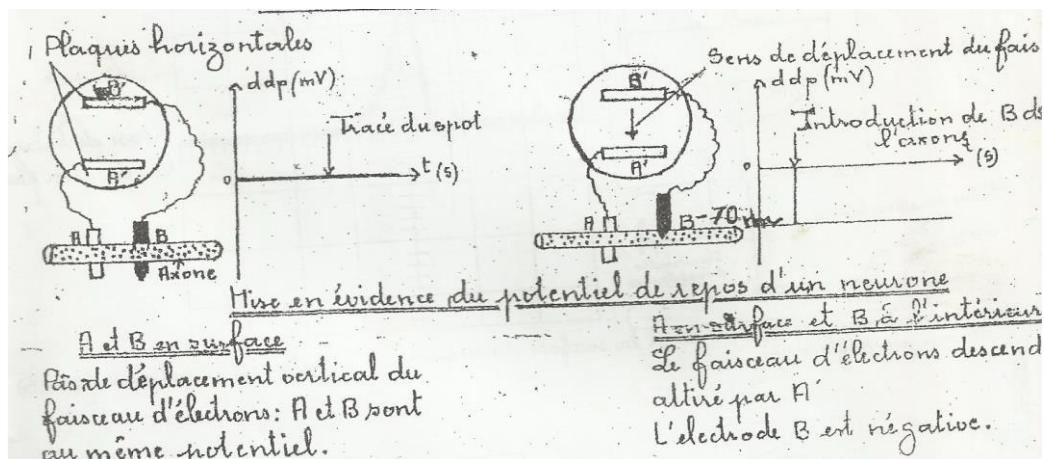 Plaques horizontales
B'
A'
A
B
Axone
ddp (mV)
Tracé du spot
0
t (s)
Sens de déplacement du fais
B'
A'
A
B
ddp (mV)
Introduction de B ds
l'axone
0
(s)
-70 mv
Mise en évidence du potentiel de repos d'un neurone
A et B en surface
Pas de déplacement vertical du
faisceau d'électrons: A et B sont
au même potentiel.
A en surface et B à l'intérieur
Le faisceau d'électrons descend
attiré par A'
L'electrode B est négative.